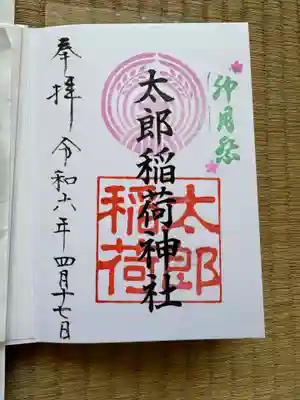 卯月祭
太郎稲荷神社
太郎
稲荷
奉拝 令和六年四月十七日